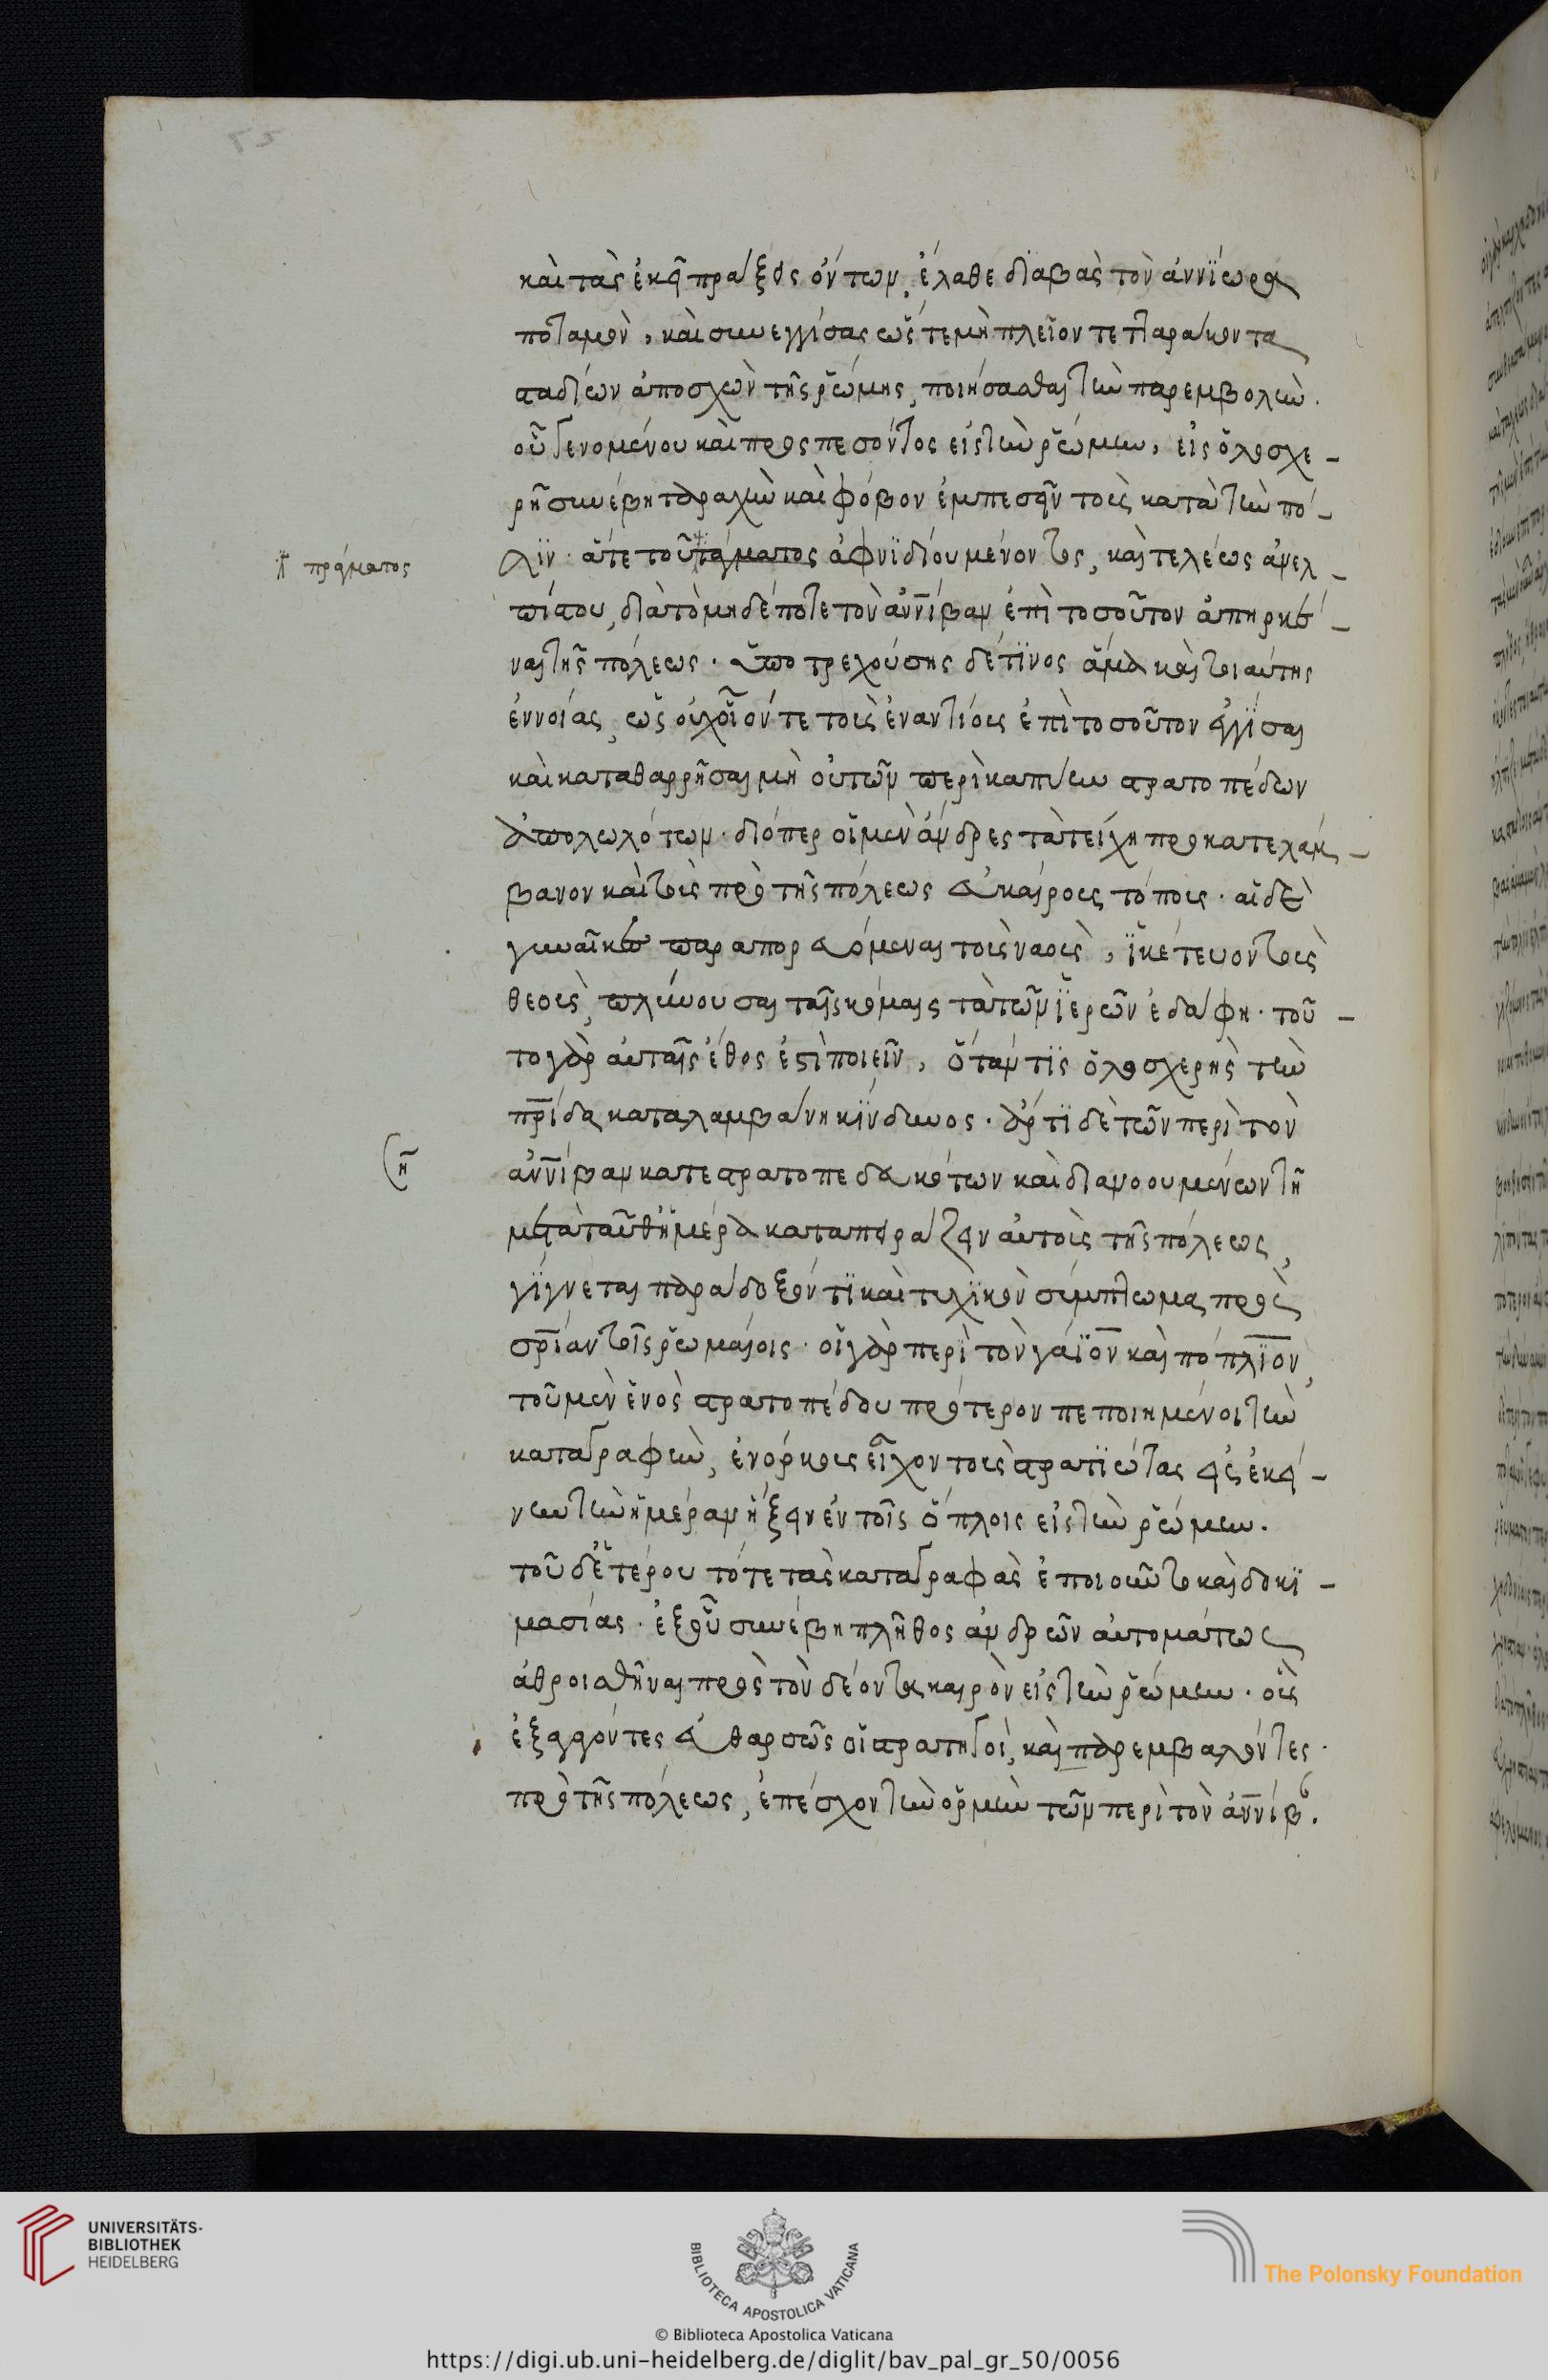 καὶ τὰς ἐκεῖ πράξεις ὄντων, ἔλαθε διαβὰς τὸν
ποταμὸν, καὶ συνεγγίσας ὥστε μὴ πλεῖον τετταράκοντα
σταδίων ἀποσχὼν τῆς ῥώμης, ποιήσασθαι τὴν παρεμβολὴν.
οὗ γενομένου καὶ προσπεσόντος εἰς τὴν ῥώμην, εἰς ὁλοσχε-
ρῆ συνέβη ταραχὴν καὶ φόβον ἐμπεσεῖν τοὺς κατὰ τὴν πό-
λϊν· ἅτε τοῦ τάγματος ἀφνϊδίου μένοντος, καὶ τελέως ἀνελ-
πίστου, διὰ τὸ μηδέποτε τὸν ἀννίβαν ἐπὶ τοσοῦτον ἀπηρκέ-
ναι τῆς πόλεως. ὑποτρεχούσης δέ τϊνος ἅμα καὶ τοιαύτης
ἐννοίας, ὡς οὐχ οἷόν τε τοὺς ἐναντίους ἐπὶ τοσοῦτον ἐγγΐσαι
καὶ καταθαρρῆσαι μὴ οὐ τῶν περὶ καπύην στρατοπέδων
ἀπολωλότων· διόπερ οἱ μὲν ἄνδρες τὰ τείχη προκατελάμ-
βανον καὶ τοὺς πρὸ τῆς πόλεως εὐκαίρους τόπους· αἱ δὲ
γυναῖκες παραπορευόμεναι τοὺς ναοὺς, ἱκέτευον τοὺς
θεοὺς, πλύνουσαι ταῖς κόμαις τὰ τῶν ἱερῶν ἐδάφη· τοῦ-
το γὰρ αὐταῖς ἔθος ἐστὶ ποιεῖν, ὅταν τϊς ὁλοσχερὴς τὴν
πρίδα καταλαμβάνη κίνδυνος. ἄρτϊ δὲ τῶν περὶ τὸν
ἀννίβαν κατεστρατοπεδευκότων καὶ διανοουμένων τῆ
μετὰ ταῦθ' ἡμέρα καταπειράζειν αὐτοὺς τῆς πόλεως,
γΐγνεται παράδοξόν τϊ καὶ τυχϊκὸν σύμπτωμα πρὸς
σρίαν τοῖς ῥωμαίοις· οἱ γὰρ περὶ τὸν γάϊον καὶ πόπλϊον,
τοῦ μὲν ἑνὸς στρατοπέδου πρότερον πεποιημένοι τὴν
καταγραφὴν, ἐνόρκους εἶχον τοὺς στρατϊώτας εἰς ἐκεί-
νην τὴν ἡμέραν ἥξειν ἐν τοῖς ὅπλοις εἰς τὴν ῥώμην.
τοῦ δ' ἑτέρου τότε τὰς καταγραφὰς ἐποιοῦντο καὶ δοκϊ-
μασίας. ἐξ οὗ συνέβη πλῆθος ἀνδρῶν αὐτομάτως
ἀθροισθῆναι πρὸς τὸν δέοντα καιρὸν εἰς τὴν ῥώμην. οὓς
ἐξαγαγόντες εὐθαρσῶς οἱ στρατηγοὶ, καὶ παρεμβαλόντες
πρὸ τῆς πόλεως, ἐπέσχον τὴν ὁρμὴν τῶν περὶ τὸν ἀννίβ.
πράγματος
ῆ
UNIVERSITÄTS-
BIBLIOTHEK
HEIDELBERG
BIBLIOTECA APOSTOLICA VATICANA
The Polonsky Foundation
© Biblioteca Apostolica Vaticana
https://digi.ub.uni-heidelberg.de/diglit/bav_pal_gr_50/0056